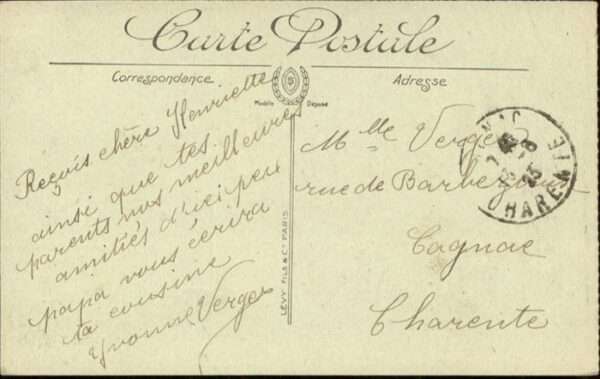 Carte Postale
Correspondance
Adresse
Modèle Déposé
Reçois chère Henriette
ainsi que tes
parents nos meilleures
amitiés d'ici peu
papa vous écrira
ta cousine
Yvonne Verger
LÉVY FILS & Cie PARIS
Melle Verger
rue de Barbezieux
Cognac
Charente
CHARENTE